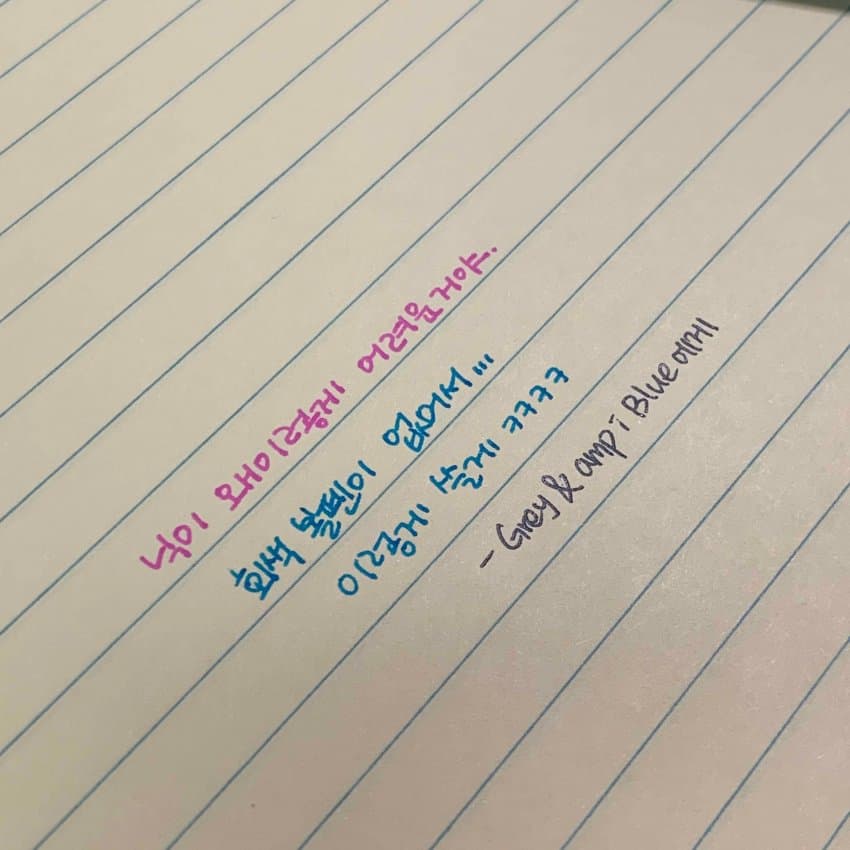 닉이 왜이렇게 어려운거야.
회색 볼펜이 없어서...
이렇게 쓸게 ㅋㅋㅋㅋ
- Grey & amp; Blue에게